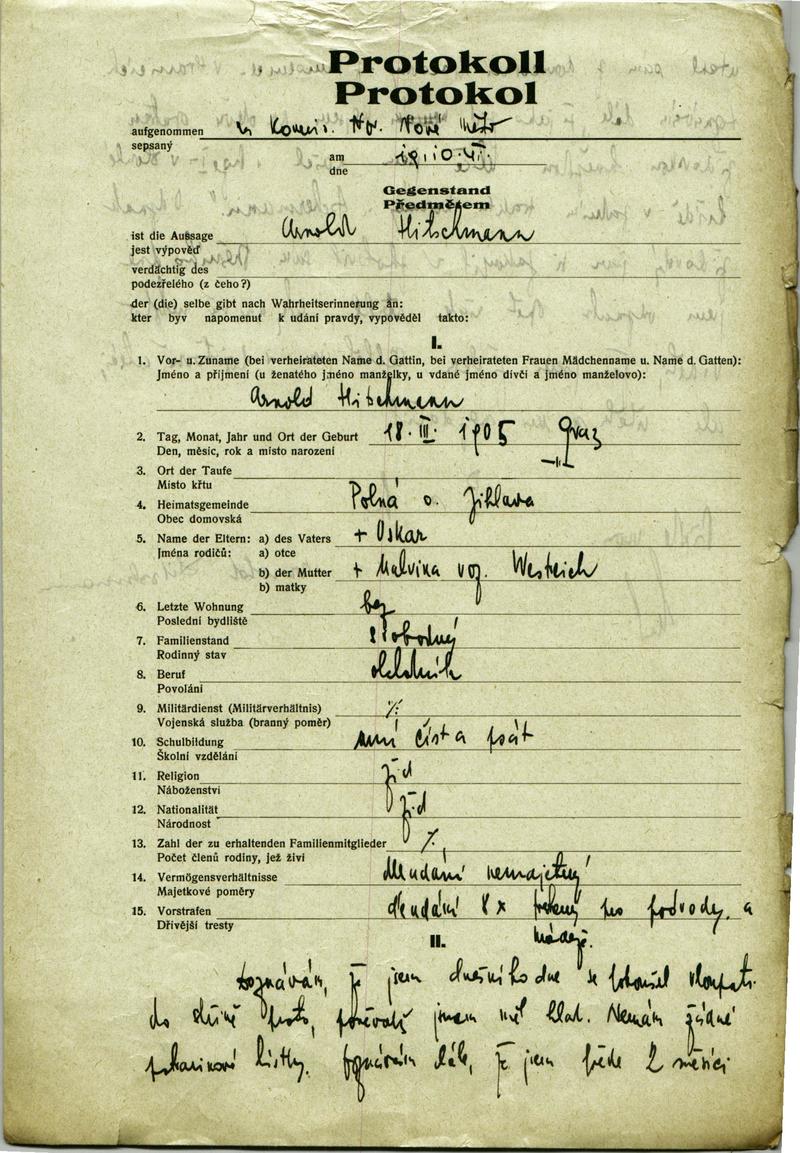 Protokoll
Protokol
aufgenommen
sepsaný
Nové
am 19.10.41.
dne
Gegenstand
Předmětem
ist die Aussage Arnold Hitschmann
jest výpověď
verdächtig des
podezřelého (z čeho?)
der (die) selbe gibt nach Wahrheitserinnerung an:
kter byv napomenut k udání pravdy, vypověděl takto:
I.
1. Vor- u. Zuname (bei verheirateten Name d. Gattin, bei verheirateten Frauen Mädchenname u. Name d. Gatten):
Jméno a příjmení (u ženatého jméno manželky, u vdané jméno dívčí a jméno manželovo):
Arnold Hitschmann
2. Tag, Monat, Jahr und Ort der Geburt 18. III. 1905 Graz
Den, měsíc, rok a místo narození
3. Ort der Taufe
Místo křtu
4. Heimatsgemeinde Polná o. Jihlava
Obec domovská
5. Name der Eltern: a) des Vaters + Oskar
Jména rodičů: a) otce
b) der Mutter + Malvina roz. Westreich
b) matky
6. Letzte Wohnung bez
Poslední bydliště
7. Familienstand svobodný
Rodinný stav
8. Beruf
Povolání
9. Militärdienst (Militärverhältnis) ./.
Vojenská služba (branný poměr)
10. Schulbildung umí číst a psát
Školní vzdělání
11. Religion žid
Náboženství
12. Nationalität žid
Národnost
13. Zahl der zu erhaltenden Familienmitglieder ./.
Počet členů rodiny, jež živí
14. Vermögensverhältnisse dle udání nemajetný
Majetkové poměry
15. Vorstrafen dle udání 8 x trestaný pro podvody a
Dřívější tresty
krádeže.
II.
Doznávám, že jsem dnešního dne se pokoušel vloupati
do skříně proto, poněvadž jsem měl hlad. Nemám žádné
potravinové lístky. Doznávám dále, že jsem přede 2 měsíci